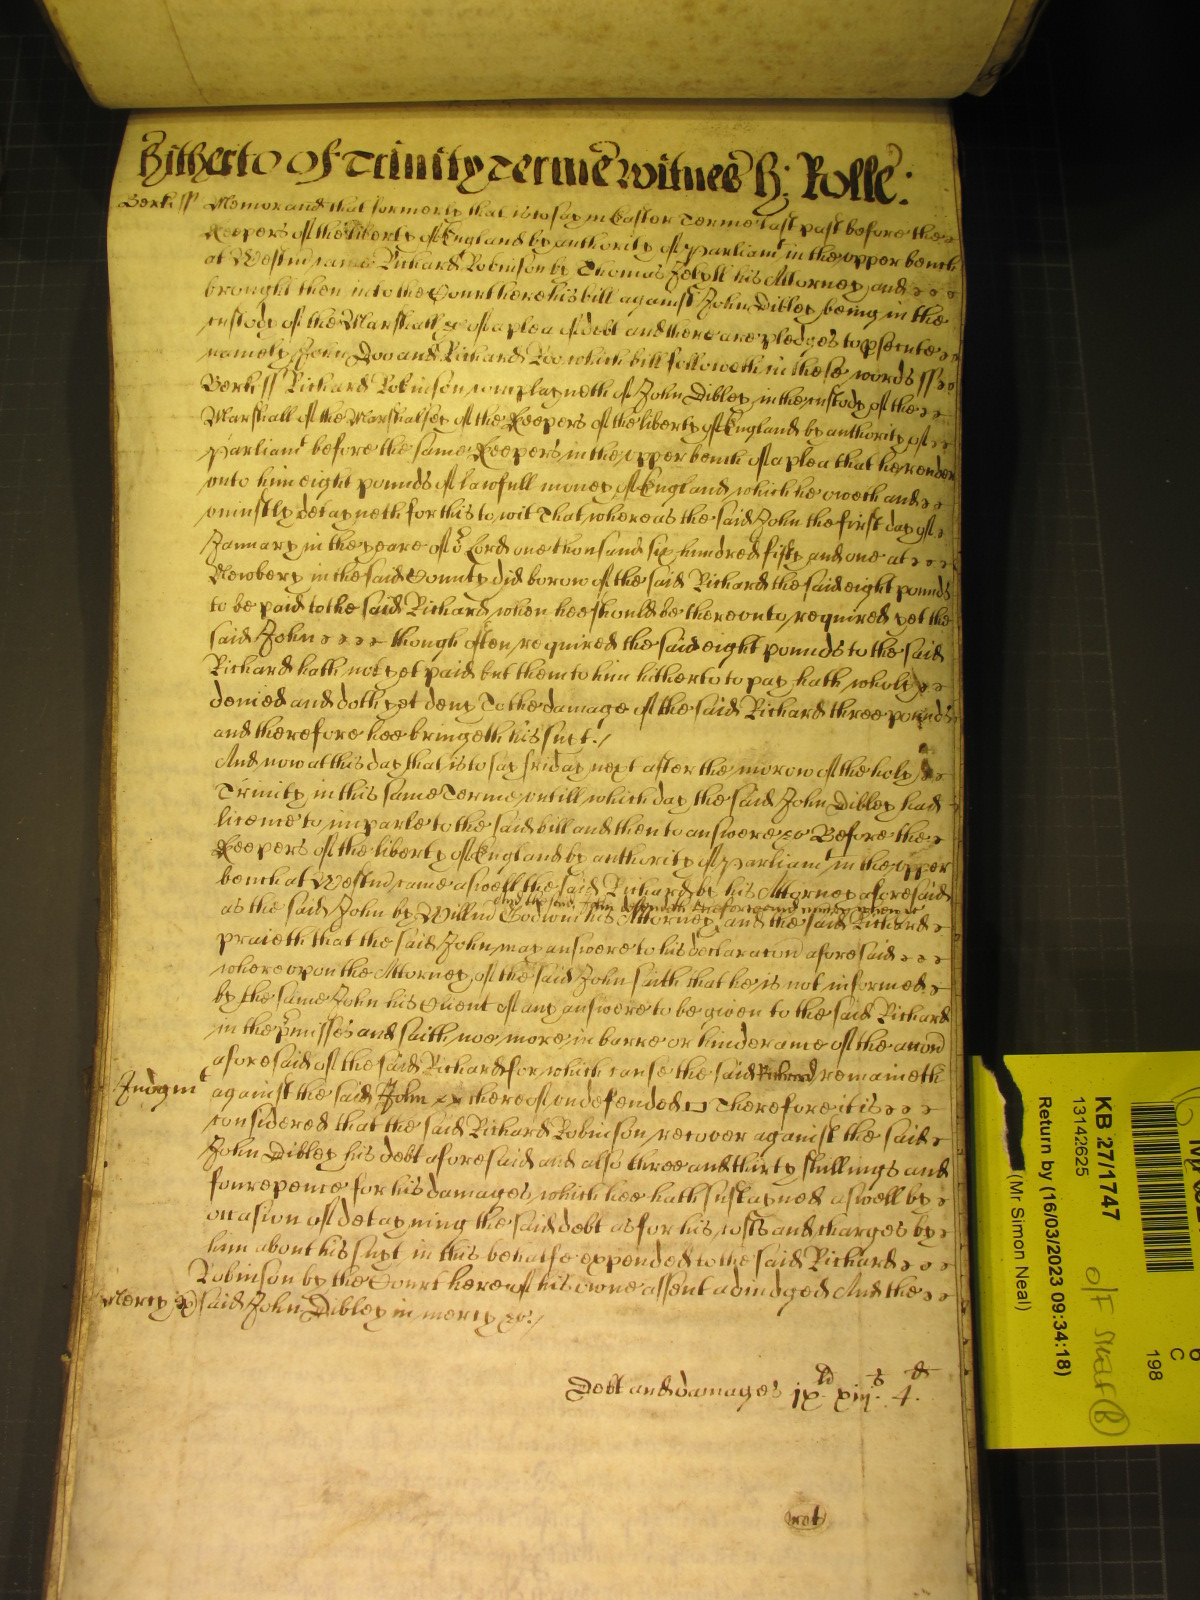 Hitherto of Trinity Terme witnes H: Rolle:
Berk ss Memorand that formerly that is to say in Easter Terme last past before the
Keepers of the liberty of England by authority of Parliamt in the upper bench
at Westm came Richard Robinson by Thomas his Attorney and
brought then into the Court here his bill against John Dibley being in the
custody of the Marshall &c of a plea of debt and there are pledges to psecute
namely John Doo and Richard Roo which bill followeth in these words ss
Berk ss Richard Robinson complayneth of John Dibley in the custody of the
Marshall of the Marshalsey of the Keepers of the liberty of England by authority of
Parliamt before the same Keepers in the upper bench of a plea that he render
unto him eight pounds of lawfull money of England which he oweth and
uniustly detayneth for this to wit That whereas the said John the first day of
January in the yeare of or Lord one thousand six hundred fifty and one at
Newbery in the said County did borow of the said Richard the said eight pounds
to be paid to the said Richard when hee should be thereonto required yet the
said John though often required the said eight pounds to the said
Richard hath not yet paid but them to him hitherto to pay hath wholy
denied and doth yet deny To the damage of the said Richard three pounds
and therefore hee bringeth his suyt /
And now at this day that is to say friday next after the morow of the holy
Trinity in this same Terme untill which day the said John Dibley had
licence to imparle to the said bill and then to answere &c Before the
Keepers of the liberty of England by authority of Parliamt in the upper
bench at Westm came aswell the said Richard by his Attorney aforesaid
and the said John defendeth the force and iniury when &c
as the said John by Willm Godwin his Attorney and the said Richard
praieth that the said John may answere to his declaracon aforesaid
whereupon the Attorney of the said John saith that he is not informed
by the same John his Client of any answere to be given to the said Richard
in the pmisses and saith noe more in barre or hinderance of the accon
aforesaid of the said Richard for which cause the said Richard remaineth
Iudgmt against the said John thereof undefended Therefore it is
considered that the said Richard Robinson recover against the said
John Dibley his debt aforesaid and also three and thirty shillings and
fourepence for his damages which hee hath sustayned aswell by
occasion of detayning the said debt as for his costs and charges by
him about his suyt in this behalfe expended to the said Richard
Robinson by the Court here of his owne assent adiudged And the
Mercy &c said John Dibley in mercy &c /
Debt and damages ix ld xiij s 4 d
KB 27/1747
13142625
Return by (16/03/2023 09:34:18)
(Mr Simon Neal)
O/F
198
6
C